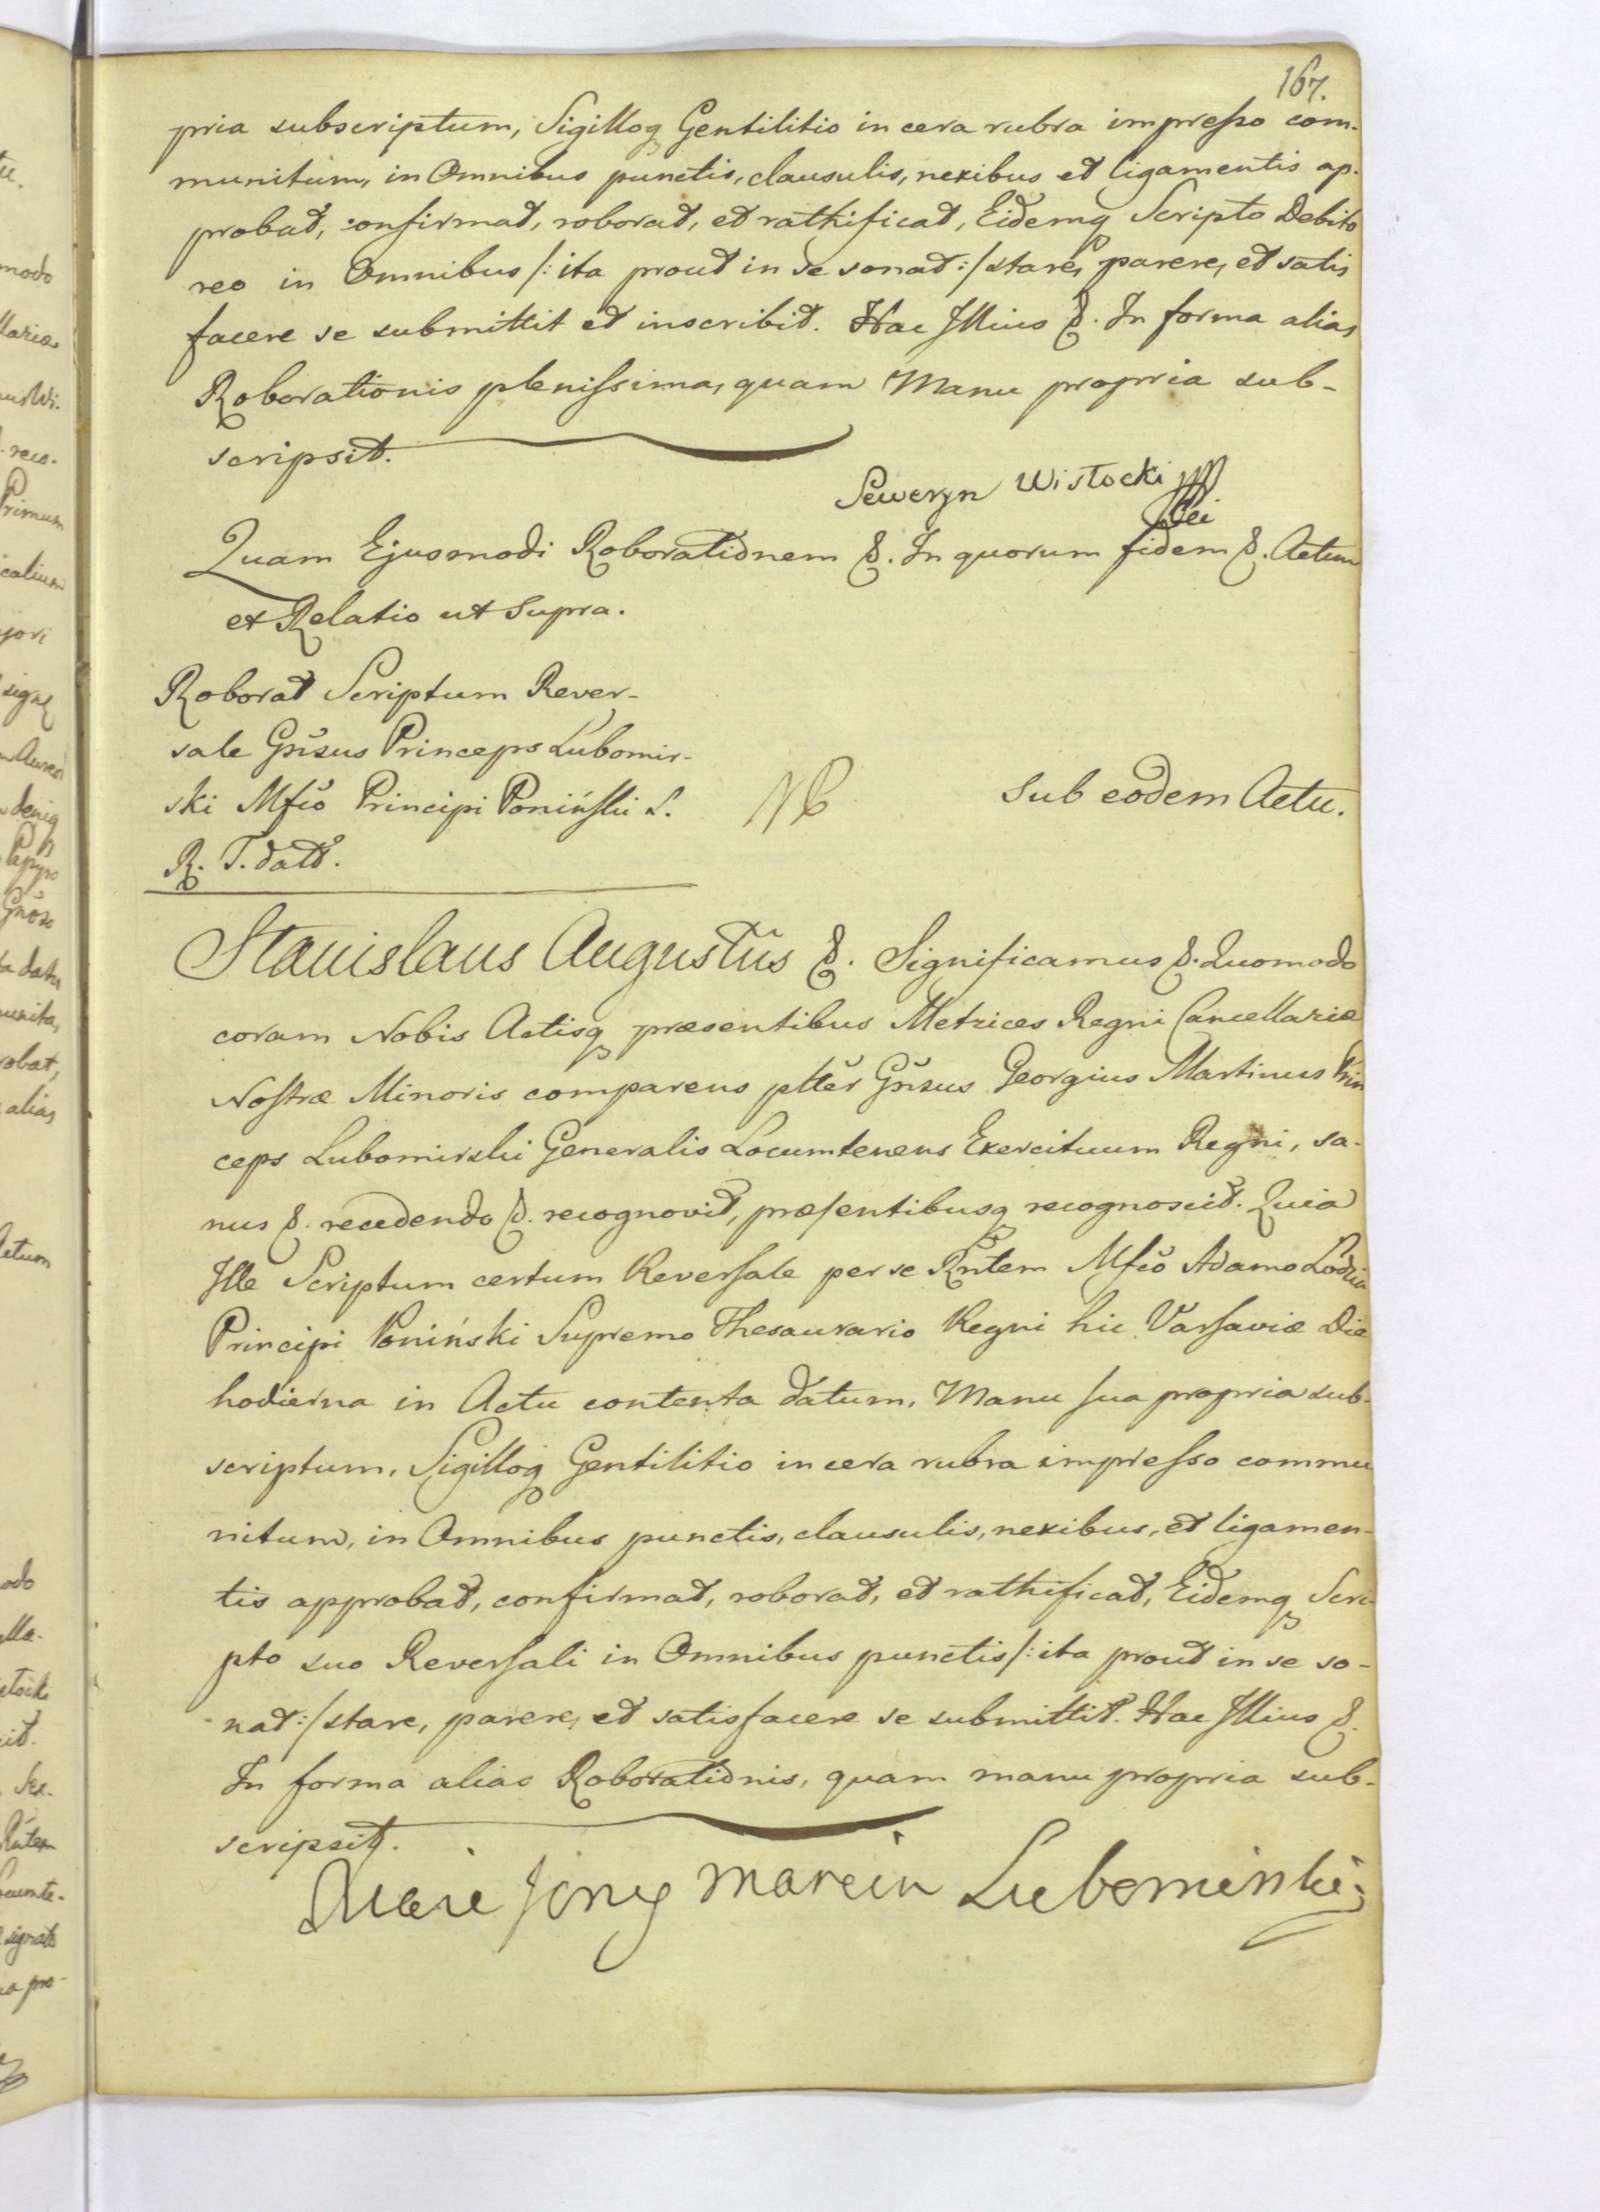 167.
pria subscriptum, Sigilloq Gentilitio in cera rubra impresso com-
munitum, in Omnibus punctis, clausulis, nexibus et ligamentis ap-
probat, confirmat, roborat, et rathificat, Eidemq Scripto Debito
reo in Omnibus /: ita prout in se sonat :/ stare, parere, et satis
facere se submittit et inscribit. Hac Illius &. In forma alias
Roborationis plenissima, quam Manu propria sub-
scripsit.
Seweryn Wistocki
Quam Ejusmodi Roborationem &. In quorum fidem &. Actum
et Relatio ut Supra.
Roborat Scriptum Rever-
sale Gnsus Princeps Lubomir-
ski Mfco Principi Poniński S.
R. T. datt.
Sub eodem Actu.
Stanislaus Augustus &. Significamus &. Quomodo
coram Nobis Actisq præsentibus Metrices Regni Cancellariæ
Nostræ Minoris comparens plter Gnsus Georgius Martinus Prin
ceps Lubomirski Generalis Locumtenens Exercituum Regni, sa-
nus &. recedendo &. recognovit, præsentibusq recognoscit. Quia
Ille Scriptum certum Reversale per se Rntem Mfco Adamo Lodzia
Principi Poniński Supremo Thesaurario Regni hic Varsaviæ Die
hodierna in Actu contenta datum, Manu sua propria sub-
scriptum, Sigilloq Gentilitio in cera rubra impresso commu
nitum, in Omnibus punctis, clausulis, nexibus, et ligamen-
tis approbat, confirmat, roborat, et rathificat, Eidemq Scri-
pto suo Reversali in Omnibus punctis /: ita prout in se so-
nat :/ stare, parere, et satisfacere se submittit. Hac Illius &.
In forma alias Roborationis, quam manu propria sub-
scripsit.
Marcin Lubomirski